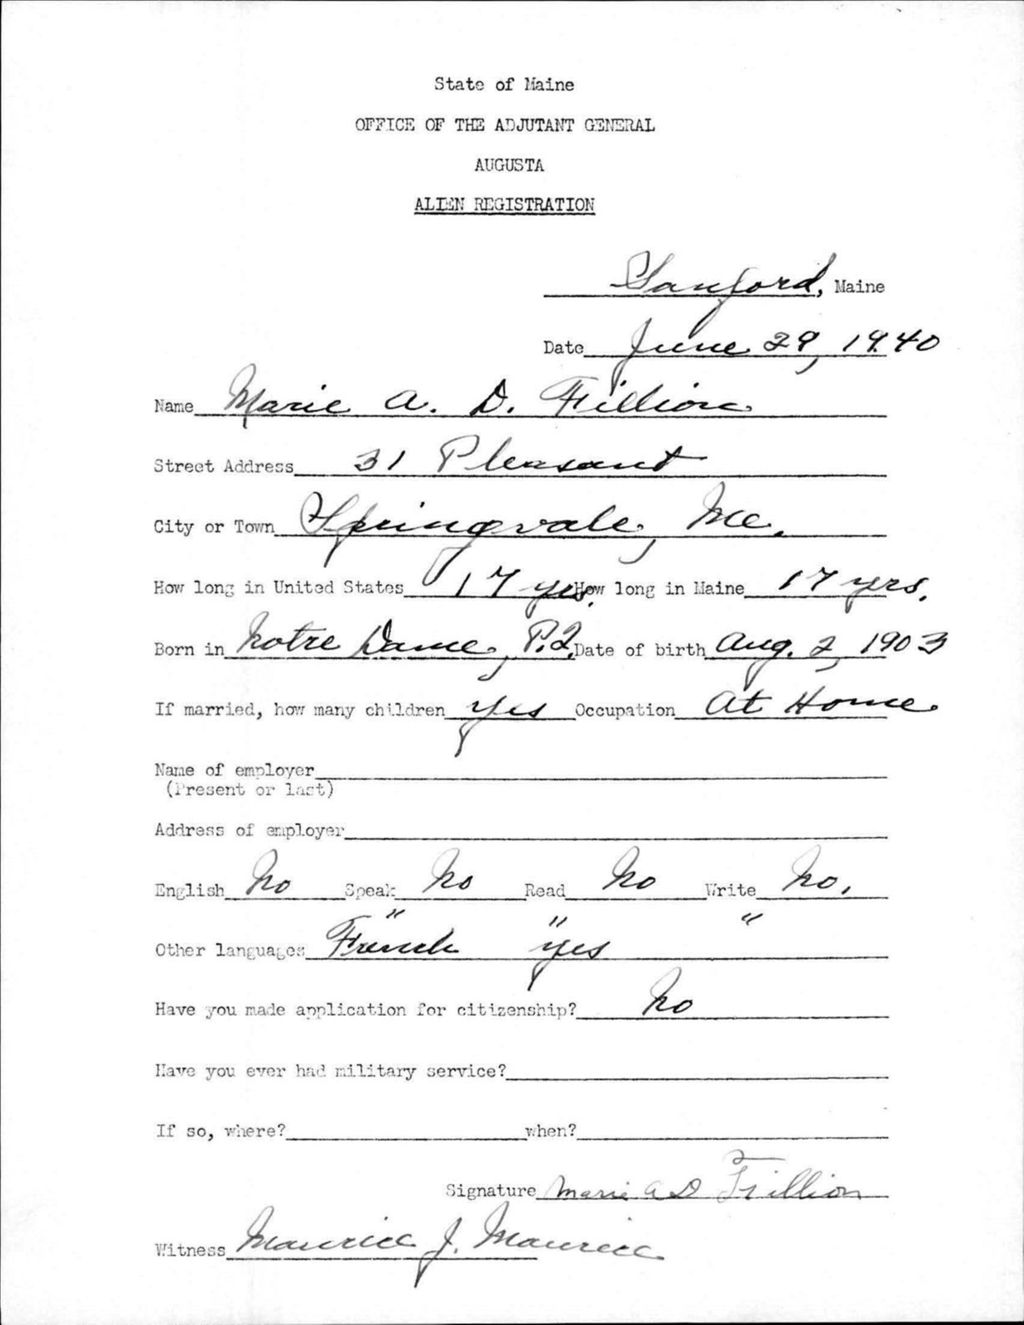 State of Maine
OFFICE OF THE ADJUTANT GENERAL
AUGUSTA
ALIEN REGISTRATION
Sanford, Maine
Date June 29, 1940
Name Marie A. D. Fillion
Street Address 31 Pleasant
City or Town Springvale, Me.
How long in United States 17 yrs. How long in Maine 17 yrs.
Born in Notre Dame, P.Q. Date of birth Aug. 2, 1903
If married, how many children yes Occupation At Home
Name of employer
(Present or last)
Address of employer
English No Speak No Read No Write No.
" " "
Other languages French yes
Have you made application for citizenship? No
Have you ever had military service?
If so, where? when?
Signature Marie A D Fillion
Witness Maurice J. Maurice